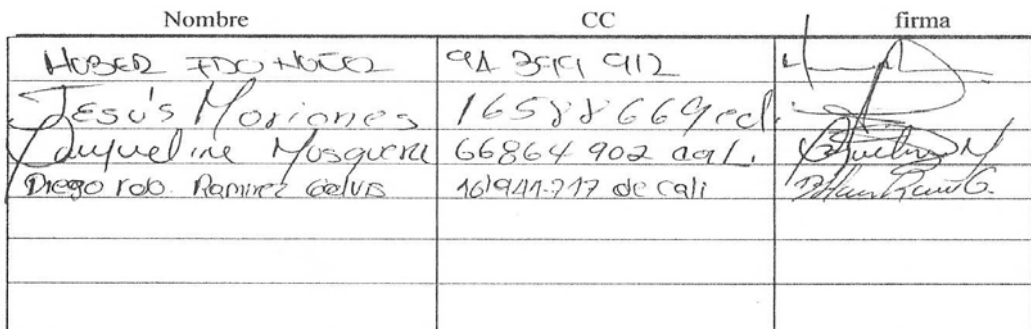 Nombre CC firma
HUBER FDO NUÑEZ 94 399 912
Jesús Moriones 16588669 cd.
Jaqueline Mosquera 66864902 cal.
Diego rob. Ramirez Gelvis 16'941.717 de cali